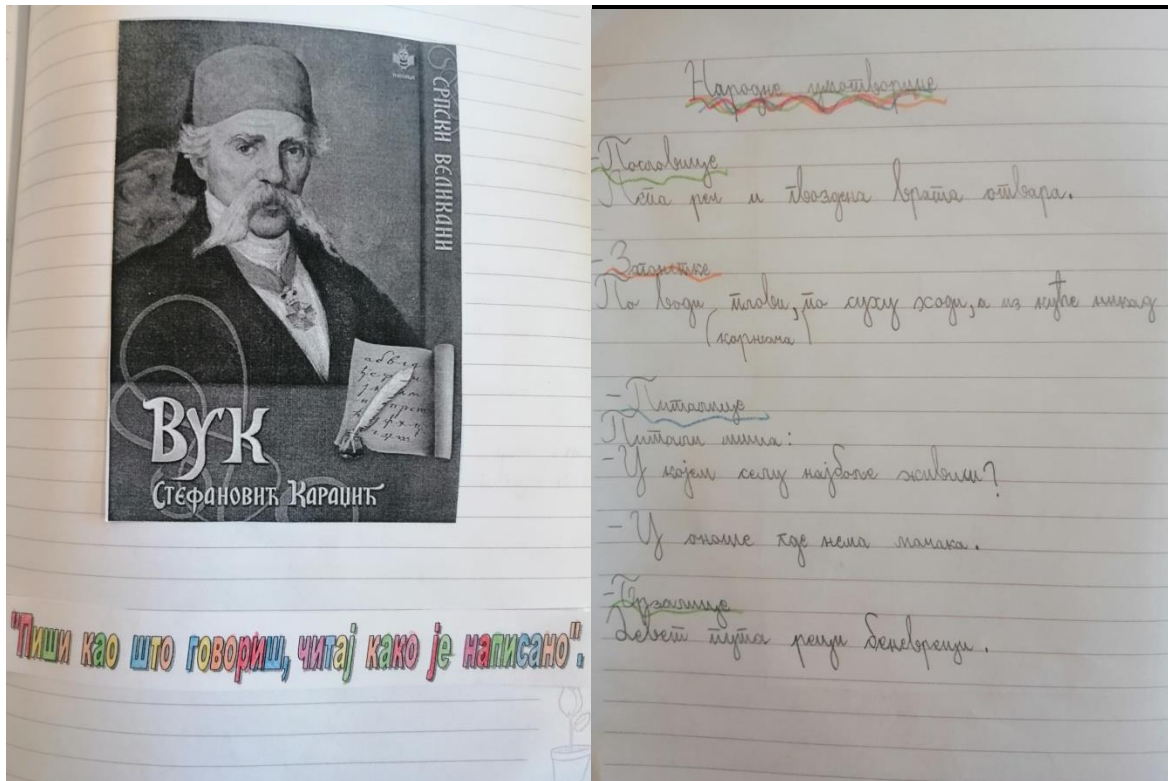 СРПСКИ ВЕЛИКАНИ
ВУК
СТЕФАНОВИЋ КАРАЏИЋ
"Пиши као што говориш, читај како је написано".
Народне умотворине
-Пословице
Лепа реч и гвоздена врата отвара.
-Загонетке
По води плови, по суху ходи, а из куће никад
(корњача)
-Питалице
Питали миша:
-У којем селу најбоље живиш?
-У ономе где нема мачака.
-Брзалице
Девет пута реци беневреци.